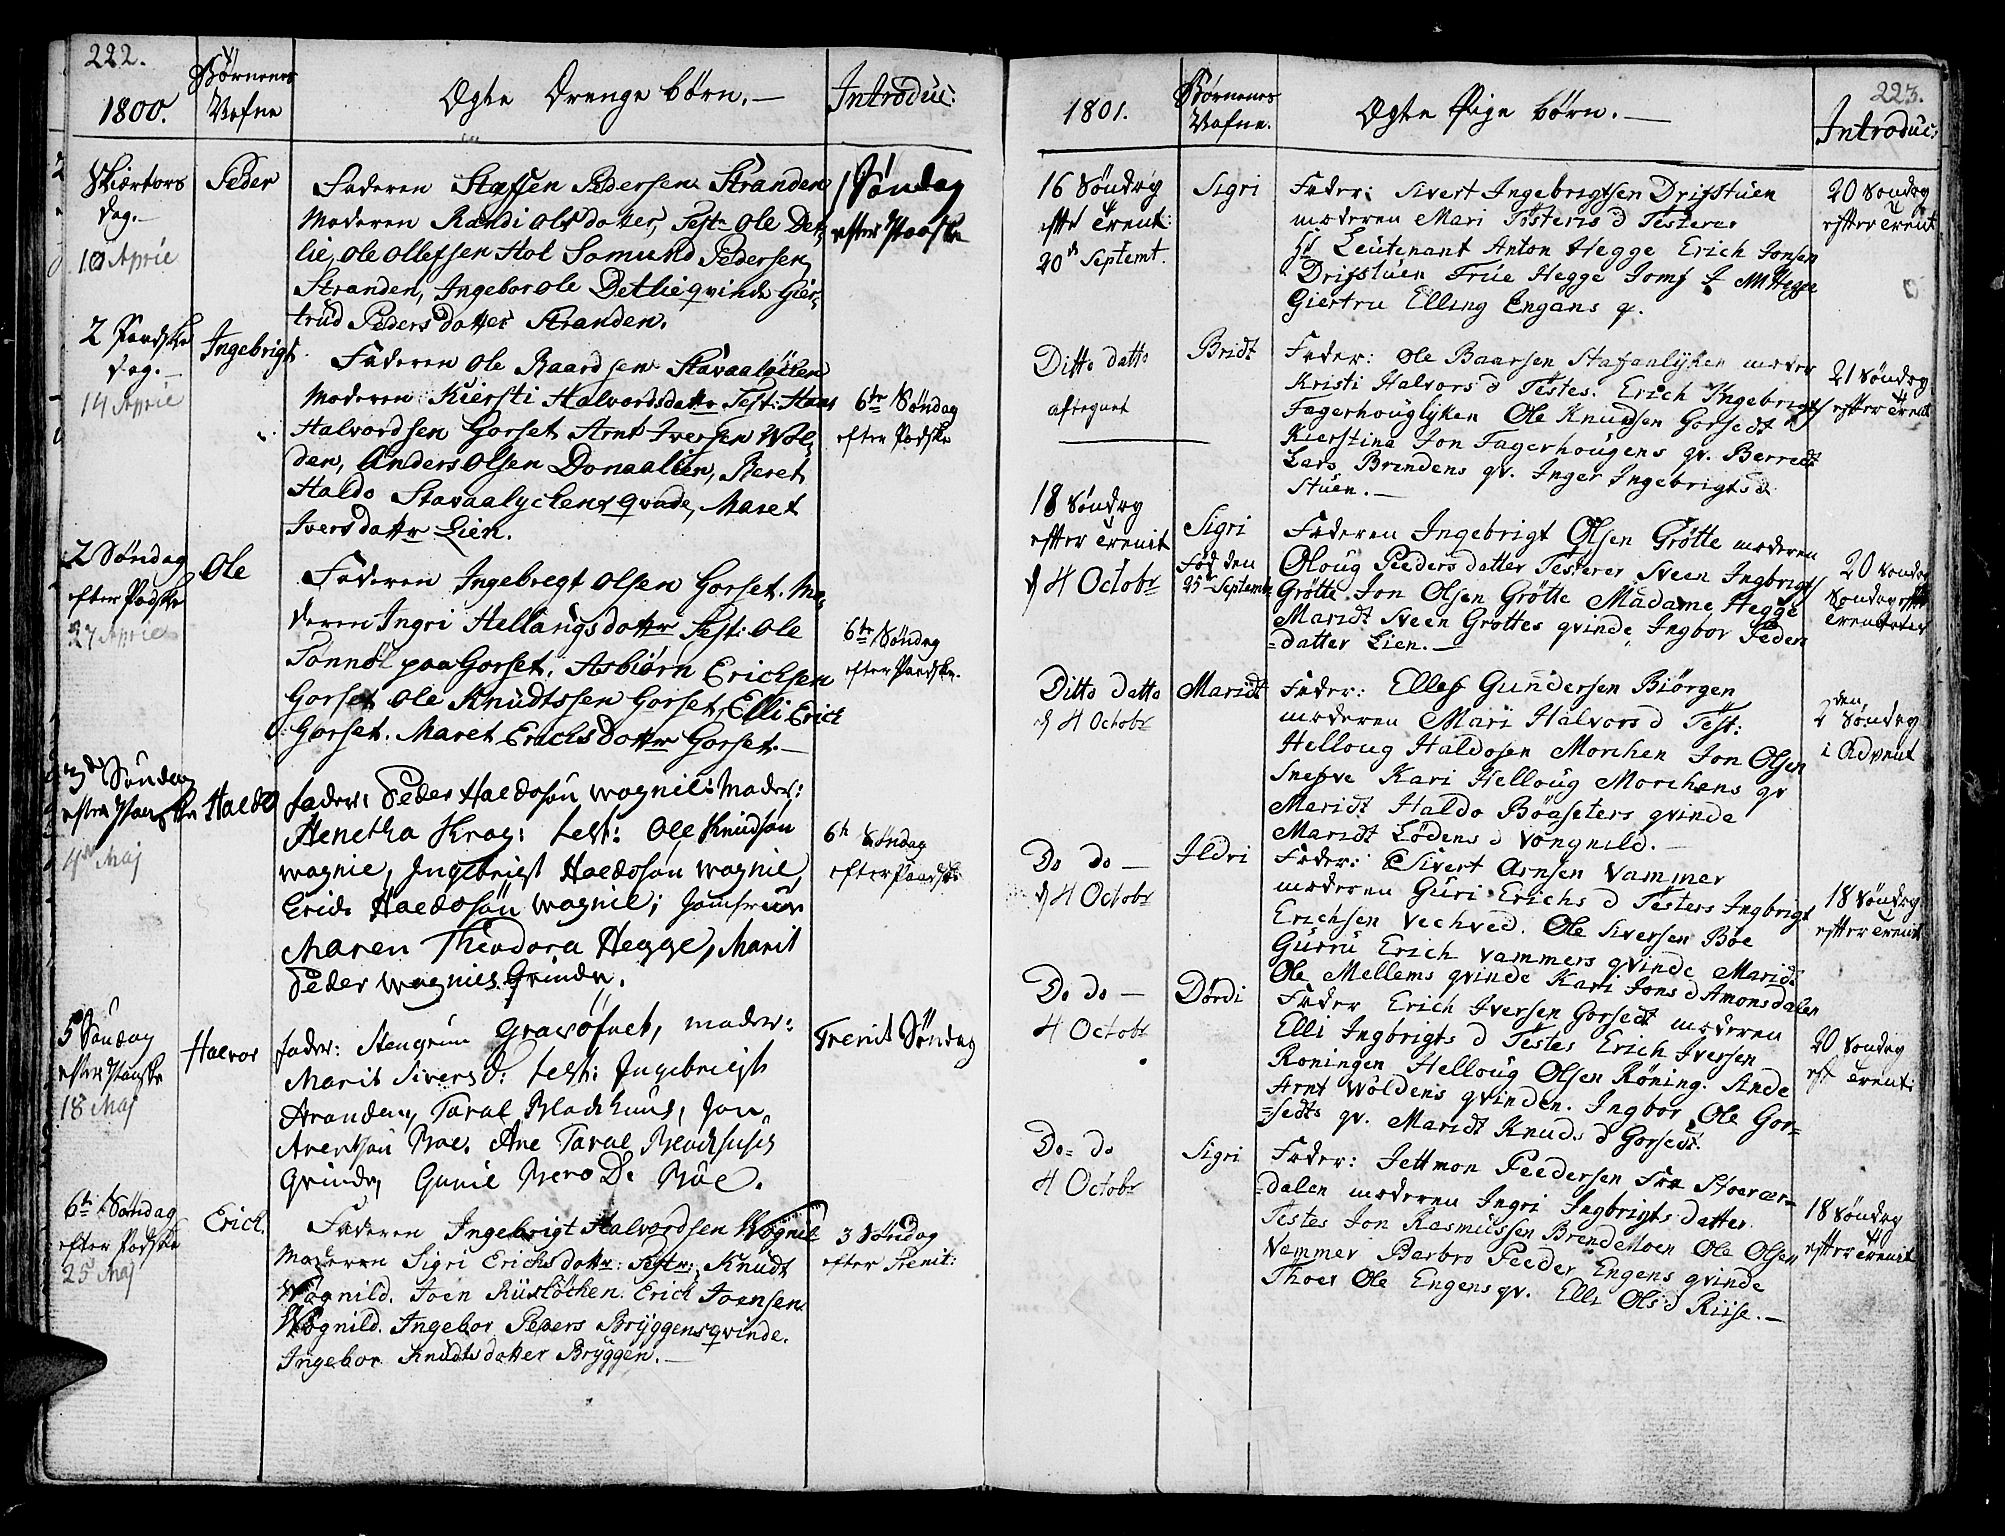 222.
1800.
Børnenes
Nafne
Ægte Drenge børn.—
Introduc:
Skiertors
dag.—
10 Aprie
Peder
Faderen Steffen Pedersen Stranden
Moderen Randi Olsdatter, Test. Ole Det-
lie, Ole Ollefsen Hol Somund Pedersen
Stranden, Ingebor Ole Detlie qvinde Gier-
trud Pedersdatter Stranden.
1 Søndag
efter Paaske
2 Paadske
dag.—
14 Aprie
Ingebrigt
Faderen Ole Baardsen Stavaaløcken
Moderen Kiersti Halvordsdattr Test: Hans
Halvordsen Gorset Arnt Iversen Wol-
den, Anders Olsen Donaalien, Beret
Haldo Stavaalyckens qvade, Maret
Iversdattr Lien.
6te Søndag
efter Podske
2 Søndag
efter Podske
27 Aprie
Ole
Faderen Ingebregt Olsen Gorset. Mo-
deren Ingri Hellangsdattr Test: Ole
Tønnøl paa Gorset. Asbiørn Erichsen
Gorset Ole Knudtssen Gorset, Elli Erich
Gorset. Maret Erichsdattr Gorset.—
6te Søndag
efter Paadske.
3de Søndag
efter Paaske
4de Maj
Haldo
fader: Peder Haldosøn Wognil: Moder:
Henetha Krag: test: Ole Knudsøn
Wognie, Ingebrigt Haldosøn Wognie,
Erich Haldosøn Wognie; Jomfrue
Maren Theodora Hegge, Marit
Peder Wognies Qvinde.
6te Søndag
efter Paadske
5 Søndag
efter Paaske
18 Maj
Halvor
fader: Stengrim Gravøfnet, moder:
Marit Sivers D: test: Ingebrigt
Aranden, Taral Blackhuus, Jon
Arentsøn Boe. Ane Taral Blachhuses
Qvinde, Gunil Bero D. Bøe.
Trenit Søndag
6te Søndag
efter Podske
25 Maj
Erich.
Faderen Ingebrigt Halvordsen Wognil
Moderen Sigri Erichsdattr: Testr: Knudt
Wognild. Joen Riisløchen. Erich Joensen
Wognild. Ingebor Peders Bryggens qvinde.
Ingebor Knudtsdatter Bryggen.—
3 Søndag
efter Trenit:
223.
1801.
Børnenes
Nafne.
Ægte Pige børn.—
Introduc:
16 Søndag
efte Trenit:
20de Septemt.
Sigri
Fader: Sivert Ingebrigtsen Drifstuen
moderen Mari Tosteris d Testerer
Hr Leutenant Anton Hegge Erich Jonsen
Drifstuen Frue Hegge Jomf M Hegge
Giertru Elling Engans q.
20 Søndag
efter Trenit
Ditto datto
afregnet
Bridt
Fader: Ole Baarsen Stafaalyken moder
Kristi Halvors d Testes. Erich Ingebrigts
Fagerhouglyken Ole Knudsen Gorsedt
Kierstina Jon Fagerhougens qv. Berredt
Lars Brendens qv. Inger Ingebrigtsd
Stuen.—
21 Søndag
efter Trenit
18 Søndag
efter Trenit
d 4 Octobr
Sigri
Fød den
25de Septembr
Faderen Ingebrigt Olsen Grøtte moderen
Oloug Peedersdatter Testerer Sveen Ingbrigts
Grøtte. Jon Olsen Grøtte Madame Hegge
Maridt Sveen Grøttes qvinde Ingbor Peder
=datter Lien.—
20 Søndag
Søndag efter
Trenitatis
Ditto datto
d 4 Octobr
Maridt
Fader: Ellef Gundersen Biørgen
moderen Mari Halvors d Test:
Helloug Haldosen Morchen Jon Olsen
Snefve Kari Helloug Morchens qv
Maridt Haldo Böasæters qvinde
Maridt Lödens d Vongnild.—
2den Søndag
i Advent
Do do —
d 4 Octobr
Ildri
Fader: Sivert Arnsen Vammer
moderen Guri Erichs d Testers Ingbrigt
Erichsen Vechved. Ole Siversen Böe
Gurru Erich Vammers qvinde Maridt
Ole Mellems qvinde Kari Jons d Amonsdalen
18 Søndag
efter Trenit
Do do —
4 Octobr
Dordi
Fader Erich Iversen Gorsedt moderen
Elli Ingbrigts d Testes Erich Iversen
Roningen Helloug Olsen Röning. Ande
Arnt Woldens qvinden. Ingbor Ole Gor=
=sedts qv. Maridt Knuds d Gorsedt.
20 Søndag
eft Trenit:
Do= do
4 Octobr
Sigri
Fader: Jettmon Peedersen Fra Stoerær=
=dalen moderen Ingri Ingbrigtsdatter
Testes Jon Rasmussen BrendeMoen Ole Olsen
Vammer Barbro Peeder Engens qvinde
Thoer Ole Engens qv. Elli Ols d Riise.—
18 Søndag
efter Trenit